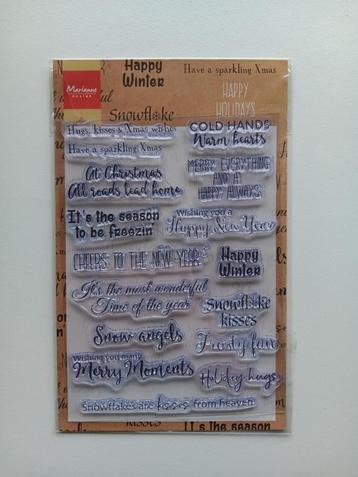 Marianne
DESIGN
Happy
Winter
Have a sparkling Xmas
HAPPY
HOLIDAYS
Snowflake
Hugs, kisses & Xmas wishes
Have a sparkling Xmas
At Christmas
All roads lead home
It's the season
to be freezin'
CHEERS TO THE NEW YEAR
It's the most wonderful
Time of the year
Snow angels
Wishing you many
Merry Moments
COLD HANDS
Warm hearts
MERRY EVERYTHING
AND A
HAPPY ALWAYS
Wishing you a
Happy New Year
Happy
Winter
Snowflake
kisses
Frosty fun
Holiday hugs
Snowflakes are kisses from heaven
kisses
It's the season